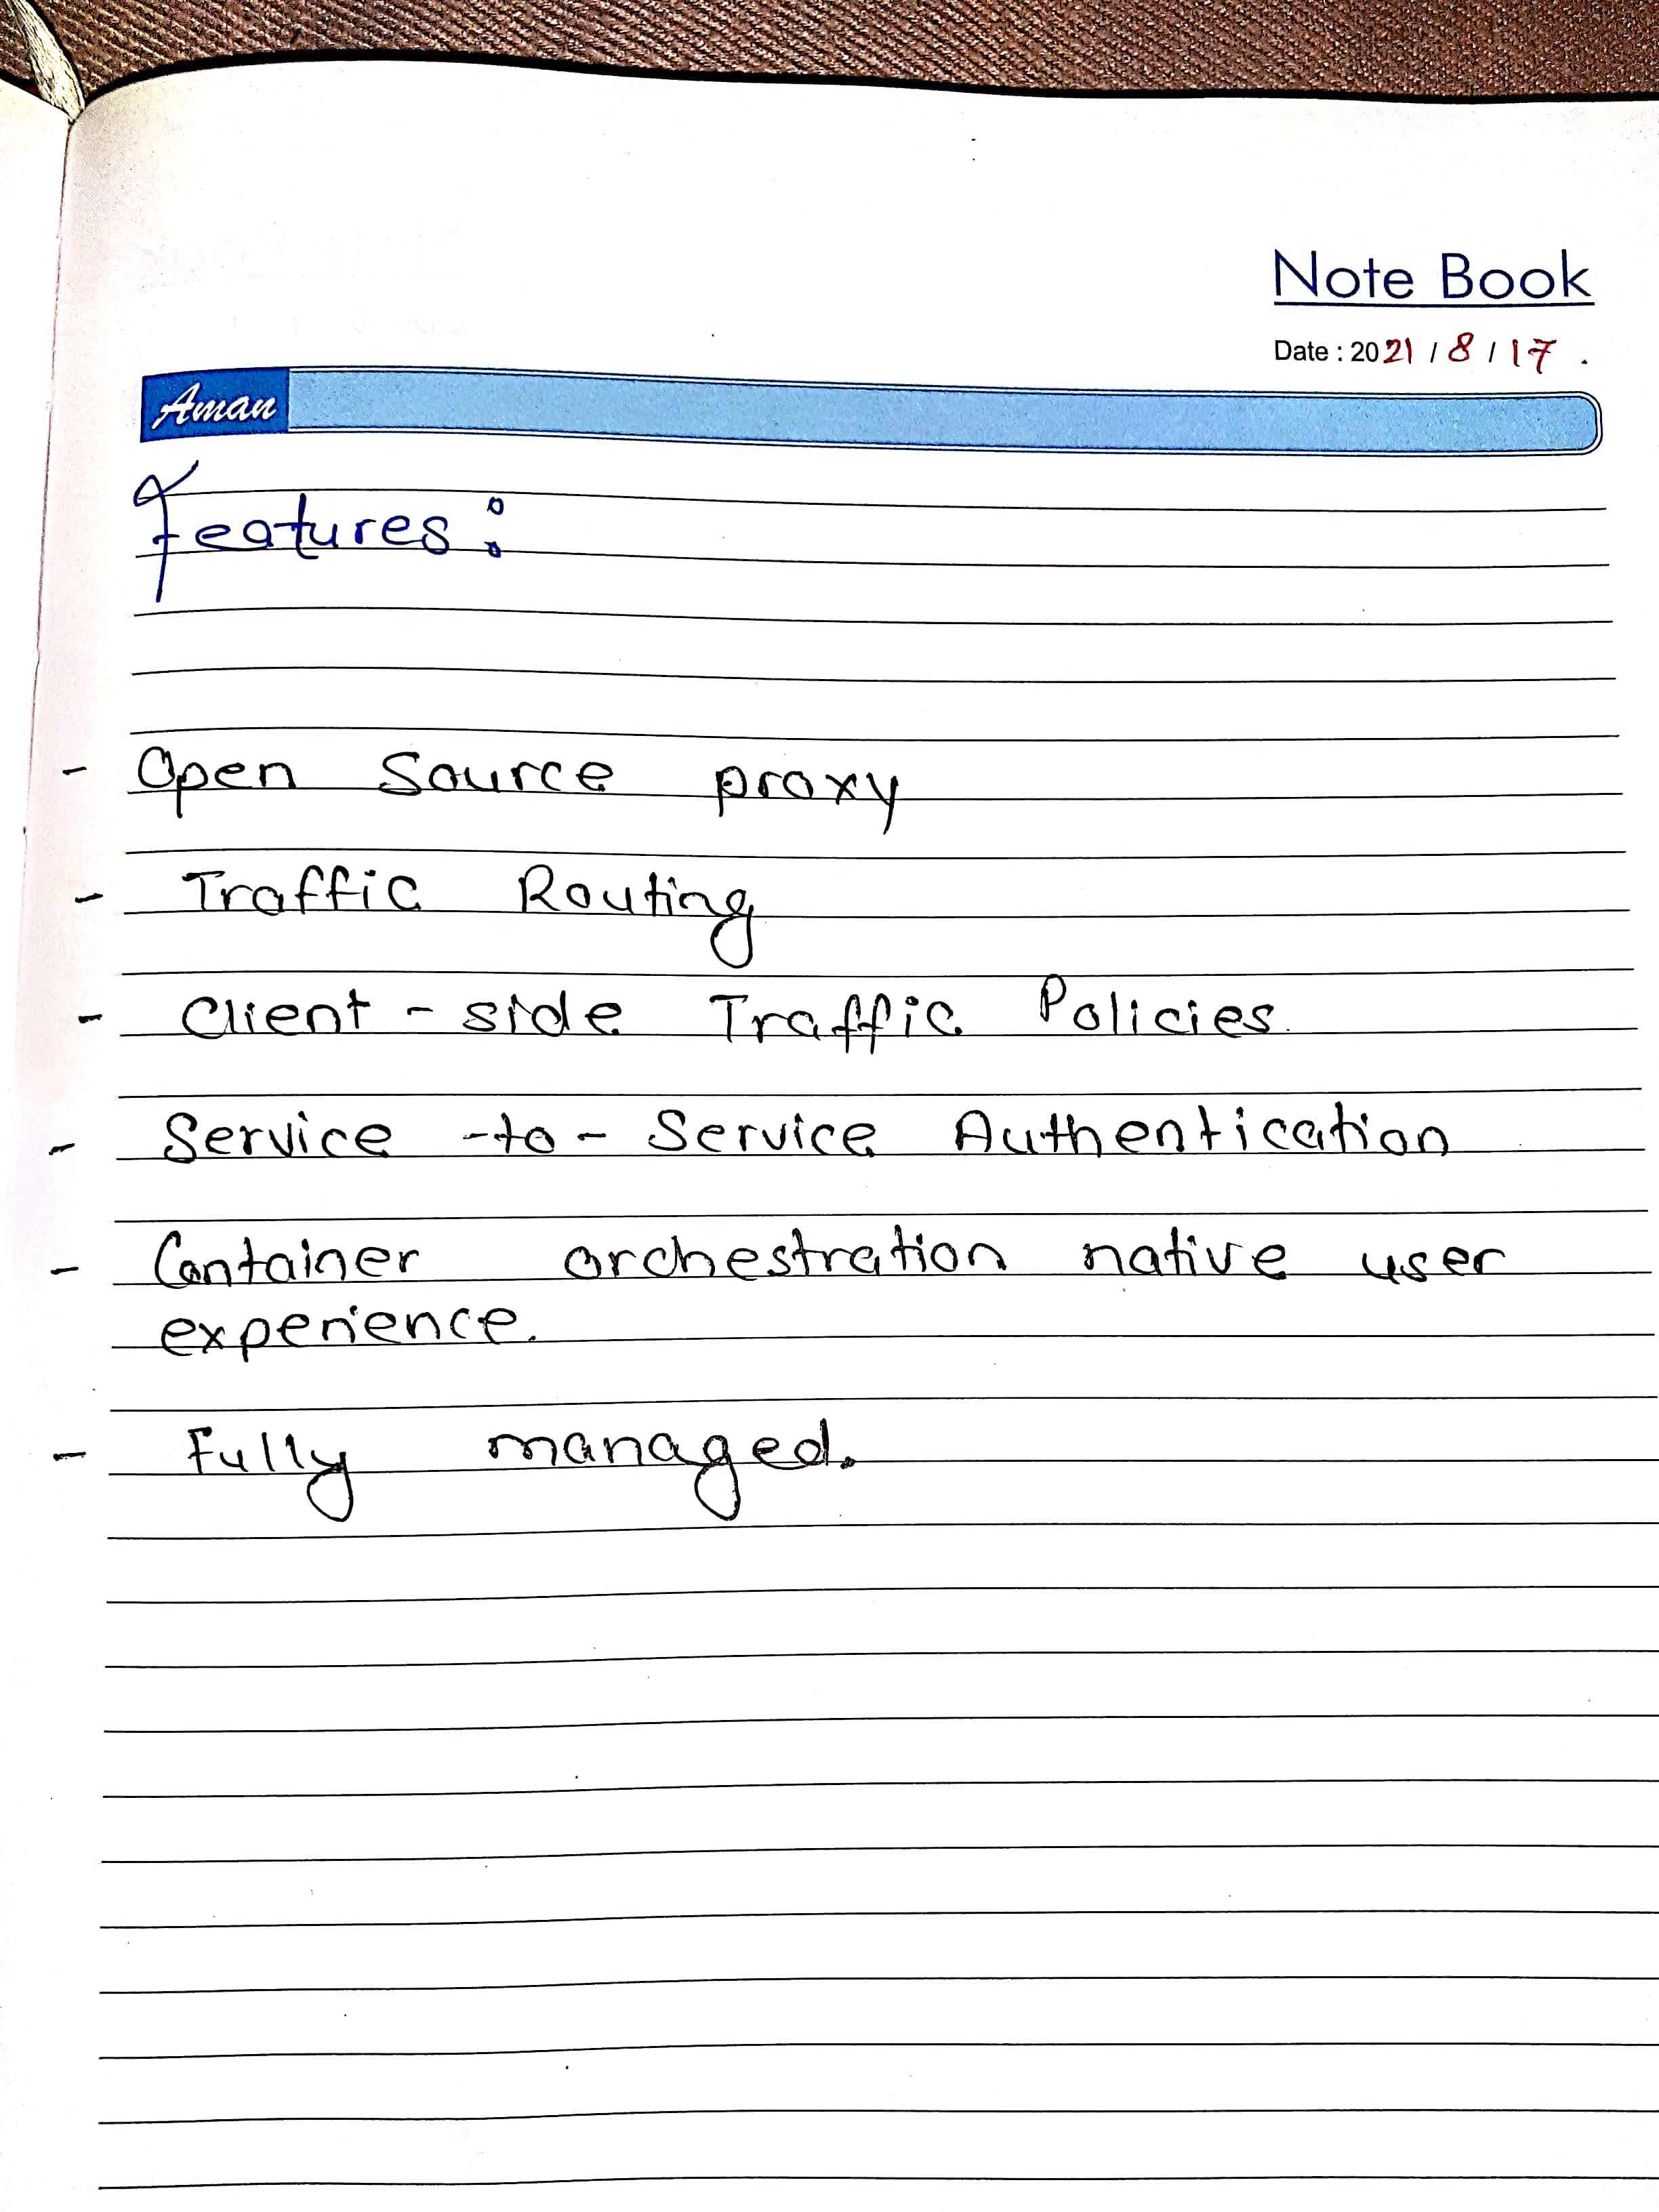 Note Book
Date : 2021 / 8 / 17 .
Aman
Features :
- Open Source proxy
- Traffic Routing
- Client - side Traffic Policies.
- Service -to- Service Authentication
- Container orchestration native user
experience.
- Fully managed.